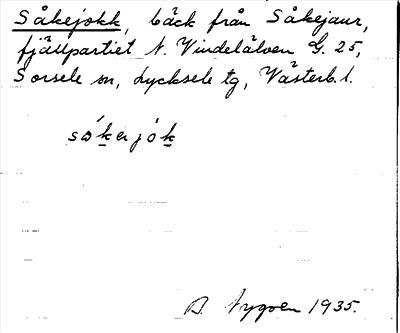 Såkejokk, bäck från Såkejaur,
fjällpartiet N. Vindelälven G. 25,
Sorsele sn, Lycksele tg, Västerb. l.
såkerjók
B. 1935.